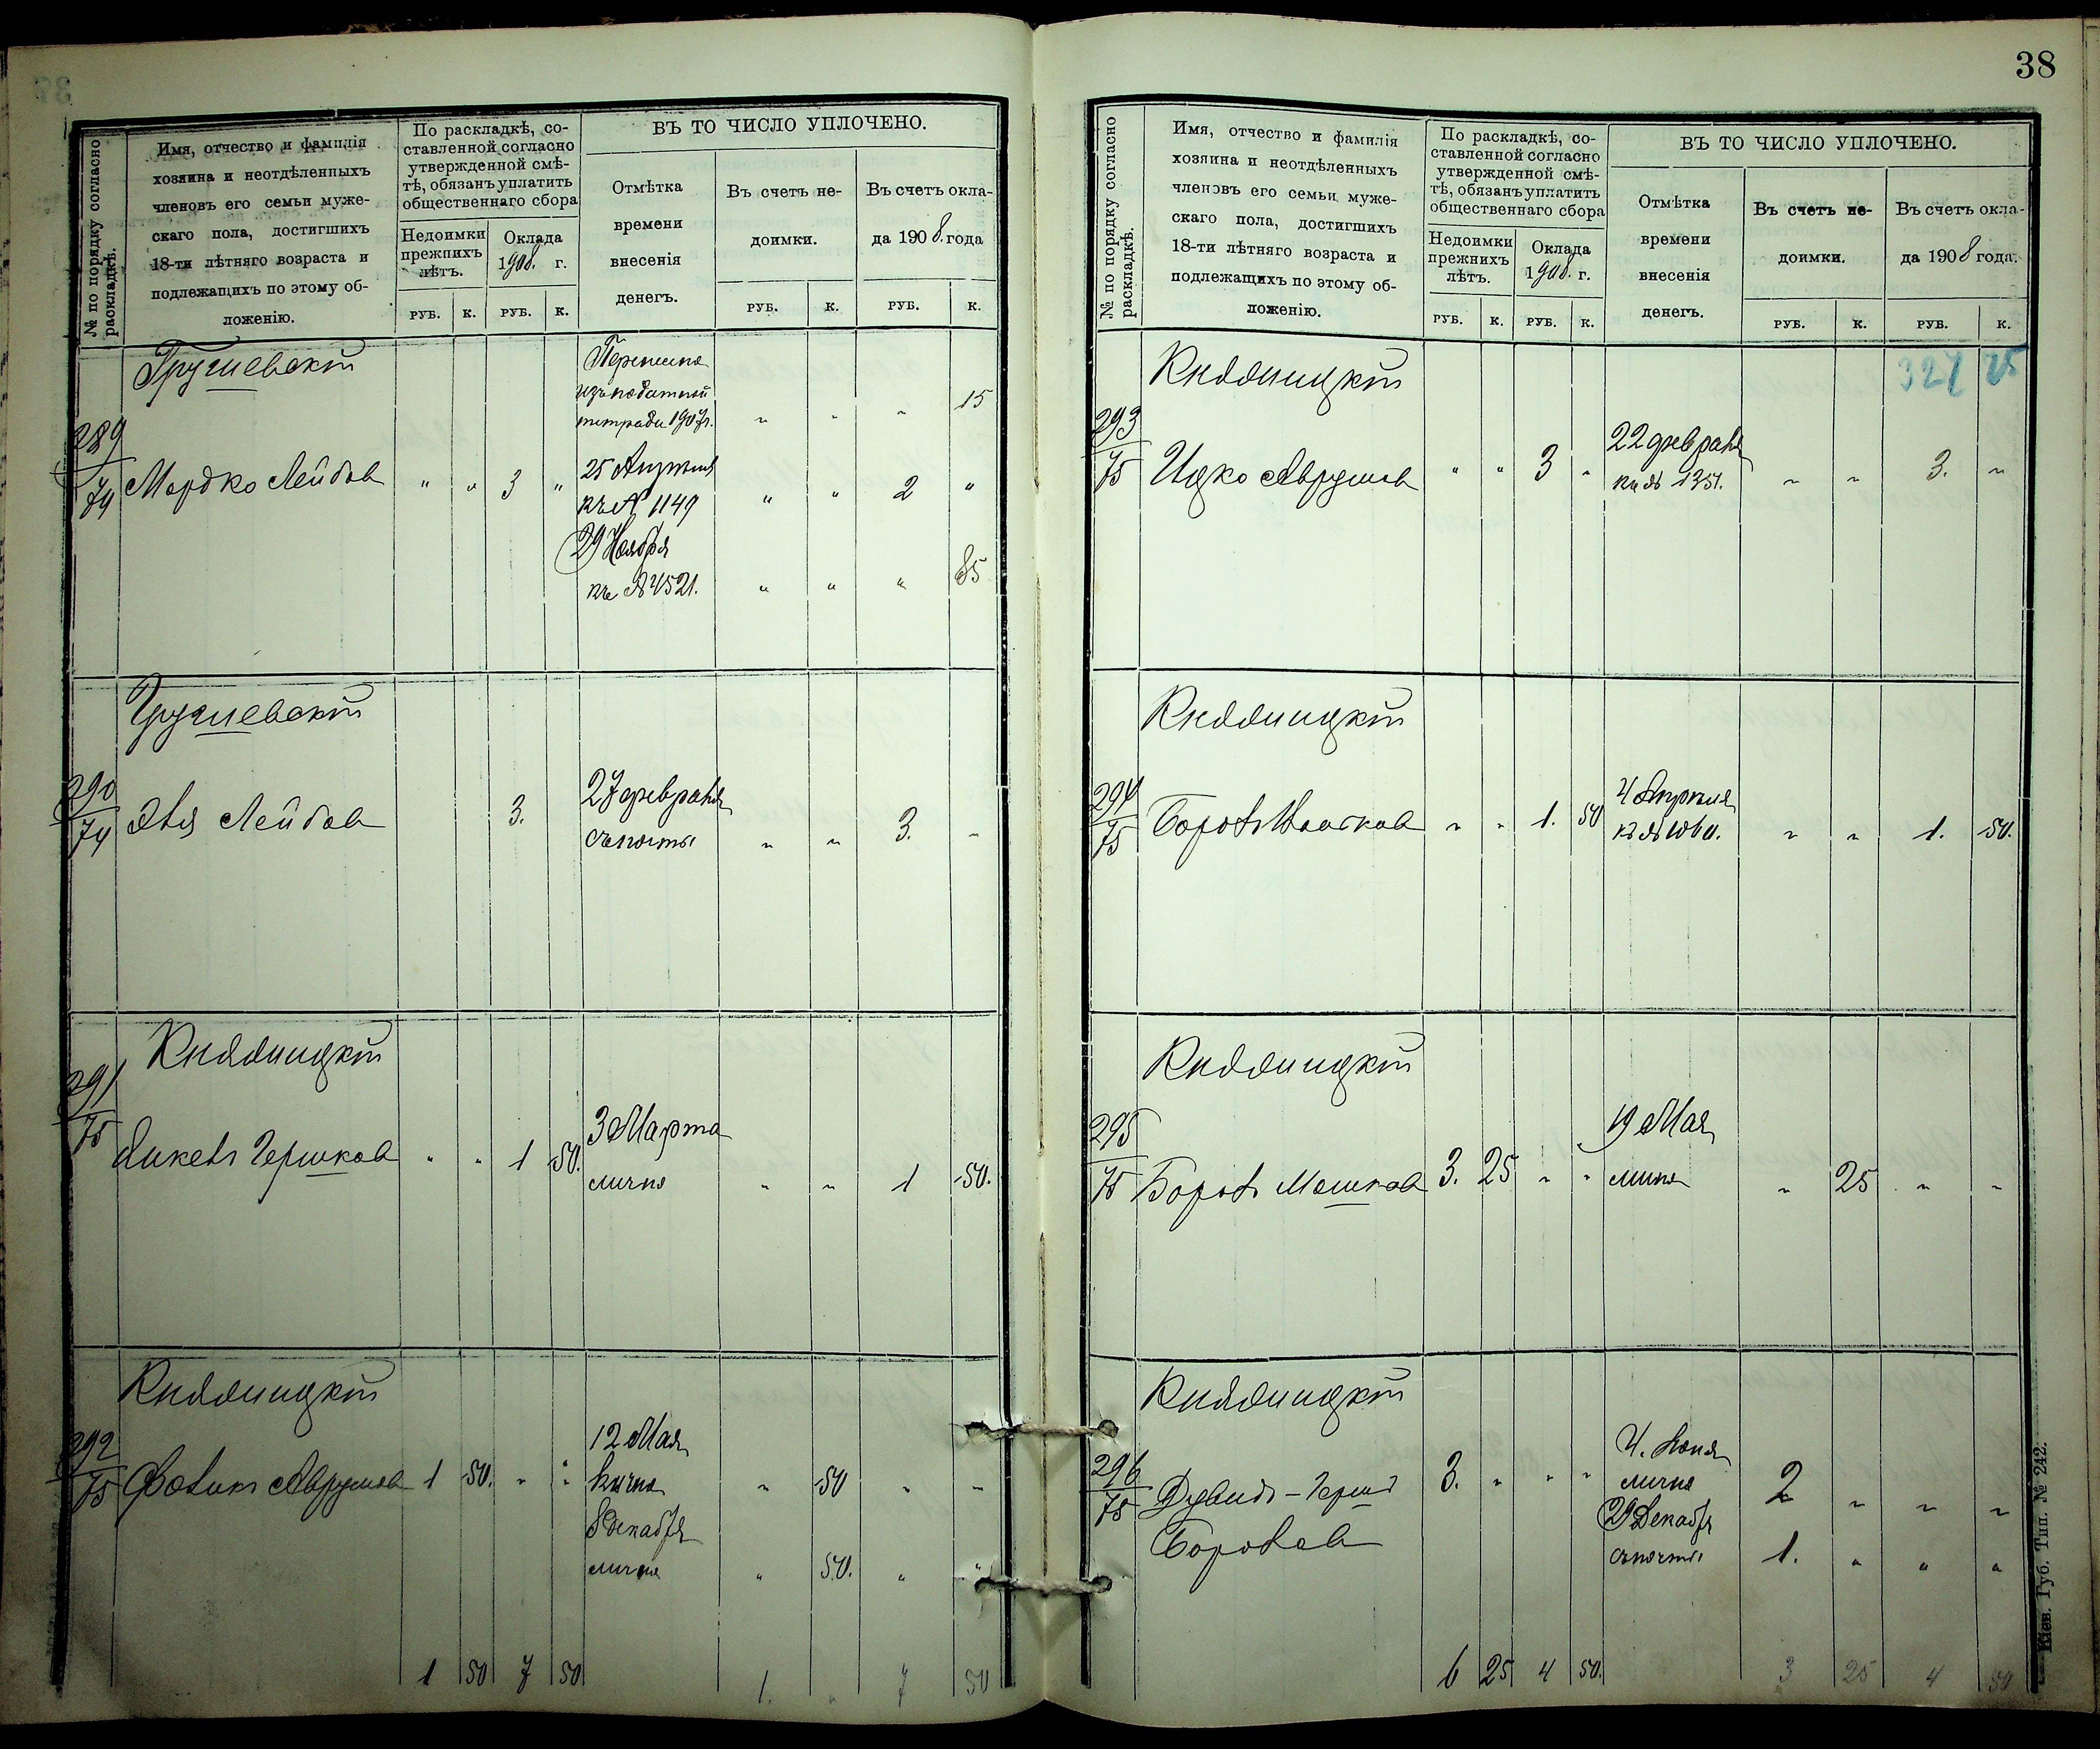 38
№ по порядку согласно раскладкѣ.
Имя, отчество и фамилія
хозяина и неотдѣленныхъ
членовъ его семьи муже-
скаго пола, достигшихъ
18-ти лѣтняго возраста и
подлежащихъ по этому об-
ложенію.
По раскладкѣ, со-
ставленной согласно
утвержденной смѣ-
тѣ, обязанъ уплатить
общественнаго сбора
Недоимки
прежнихъ
лѣтъ.
Оклада
1908. г.
РУБ. К. РУБ. К.
ВЪ ТО ЧИСЛО УПЛОЧЕНО.
Отмѣтка
времени
внесенія
денегъ.
Въ счетъ не-
доимки.
Въ счетъ окла-
да 1908. года
РУБ. К. РУБ. К.
Грушевскій
289/74 Мордко Лейбов " " 3 "
Перечислено
изъ податной
тетради 1907г. " " " 15
25 Апрѣля
къ № 1149 " " 2 "
29 Ноября
къ № 4521. " " " 85
Грушевскій
290/74 Лейбов 3.
27 февраля
съ почты " " 3. "
Княжицкій
291/75 Гершков " " 1 50.
3 Марта
лично " " 1 50.
Княжицкій
292/75 Аврумов 1 50. " "
12 Мая
лично " 50 " "
8 Декабря
лично " 50. " "
1 50 7 50 1. " 7 50
№ по порядку согласно раскладкѣ.
Имя, отчество и фамилія
хозяина и неотдѣленныхъ
членовъ его семьи муже-
скаго пола, достигшихъ
18-ти лѣтняго возраста и
подлежащихъ по этому об-
ложенію.
По раскладкѣ, со-
ставленной согласно
утвержденной смѣ-
тѣ, обязанъ уплатить
общественнаго сбора
Недоимки
прежнихъ
лѣтъ.
Оклада
1908. г.
РУБ. К. РУБ. К.
ВЪ ТО ЧИСЛО УПЛОЧЕНО.
Отмѣтка
времени
внесенія
денегъ.
Въ счетъ не-
доимки.
Въ счетъ окла-
да 1908 года.
РУБ. К. РУБ. К.
Княжицкій
293/75 Ицко Аврумов " " 3 "
22 февраля
къ № 1351. " " 3. "
Княжицкій
294/75 " " 1. 50
4 Апрѣля
къ № " " 1. 50.
Княжицкій
295/75 Борох Мошков 3. 25 " "
19 Мая
лично " 25 " "
Княжицкій
296/75 Дувидъ-Герш 3. " " "
Борохов
4. Юня
лично 2 " " "
29 Декабря
съ почты 1. " " "
6 25 4 50. 3 25 4 50
Кіев. Губ. Тип. № 242.